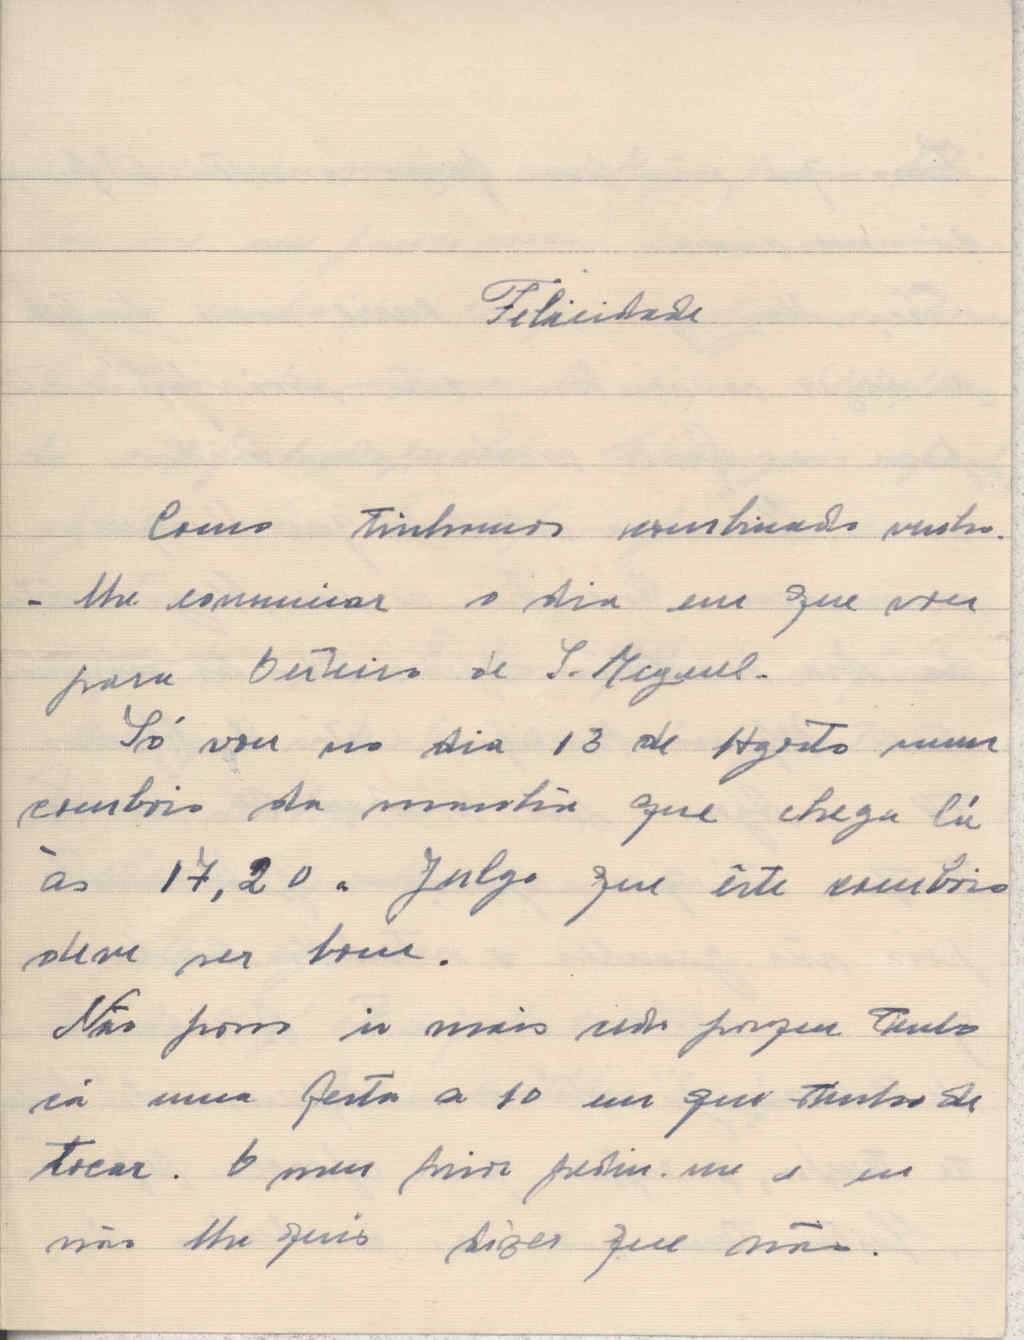 Felicidade
Como tinhamos combinado venho-
- lhe comunicar o dia em que vou
para Oiteiro de S. Miguel.
Só vou no dia 13 de Agosto num
comboio da manhã que chega lá
às 17,20. Julgo que êste comboio
deve ser bom.
Não posso ir mais cedo porque tenho
cá uma festa a 10 em que tenho de
tocar. O meu prior pediu-me e eu
não lhe quis dizer que não.